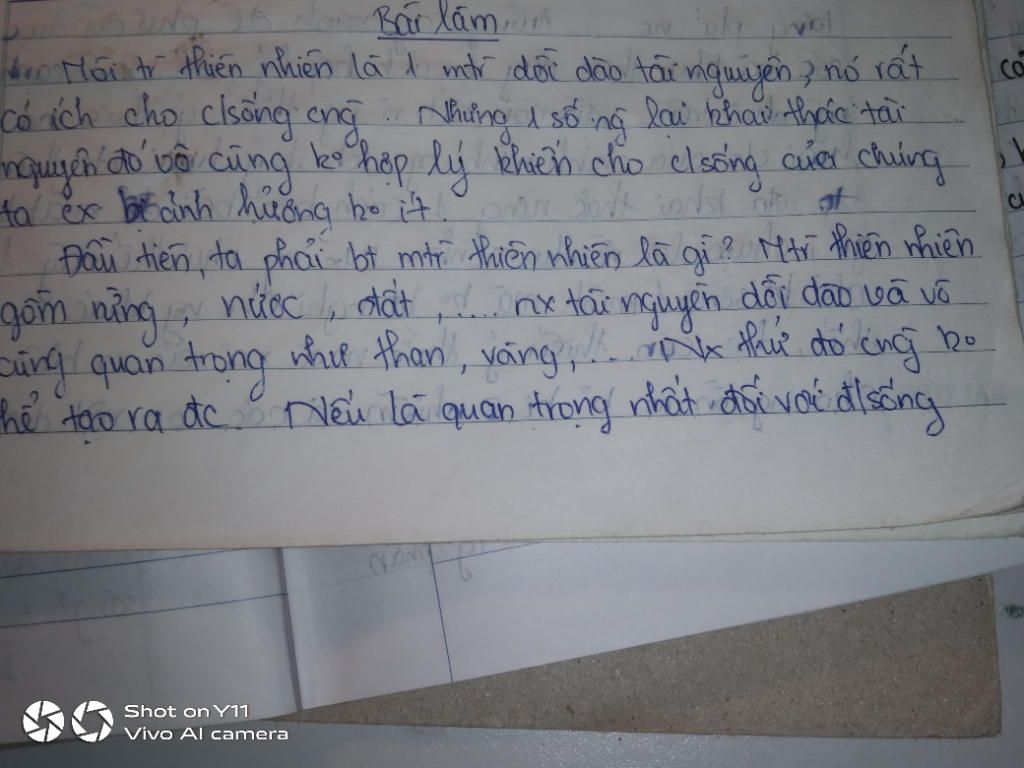 Bài làm
Môi tr thiên nhiên là 1 mtr dồi dào tài nguyên, nó rất
có ích cho c/sống cng. Nhưng 1 số ng lại khai thác tài
nguyên đó vô cùng ko hợp lý khiến cho c/sống của chúng
ta ex ảnh hưởng ko ít.
Đầu tiên, ta phải bt mtr thiên nhiên là gì? Mtr thiên nhiên
gồm rừng, nước, đất, .... nx tài nguyên dồi dào và vô
cùng quan trọng như than, vàng, .... Nx thứ đó cng ko
hể tạo ra đc. Nếu là quan trọng nhất đối với đ/sống
Shot on Y11
Vivo AI camera